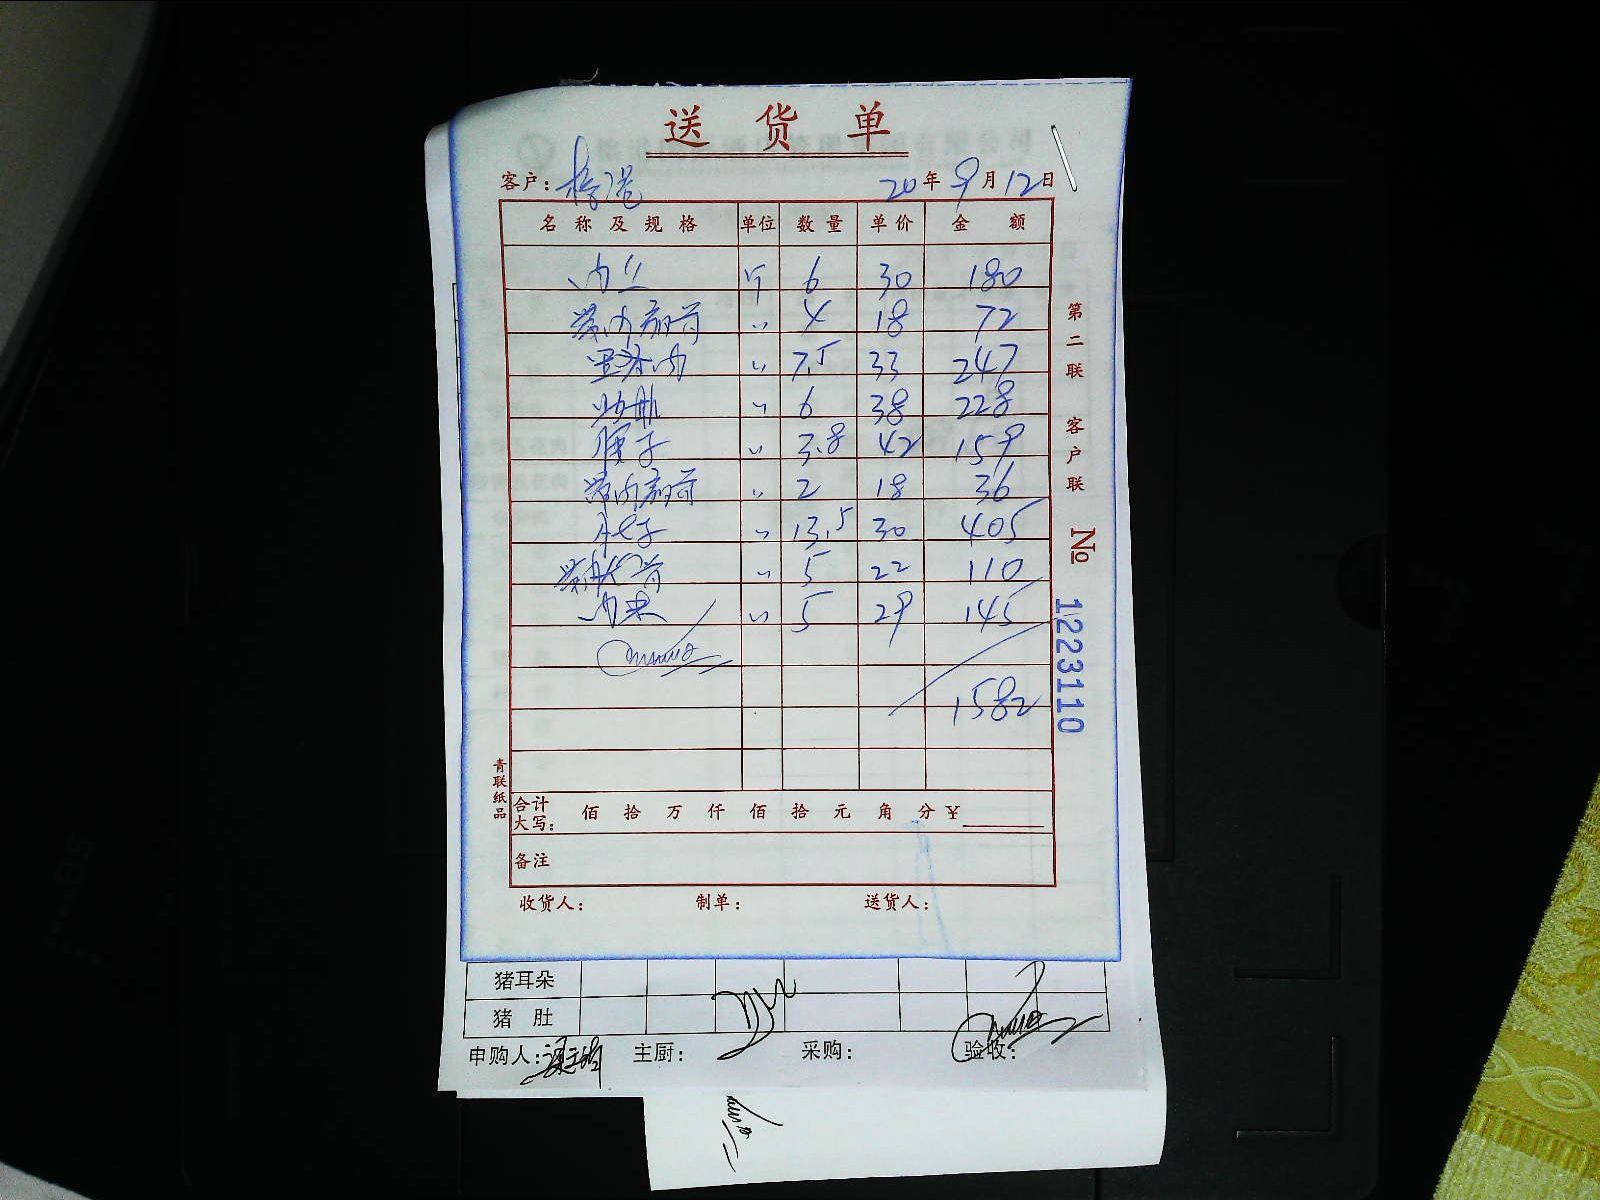 送货单
客户: 20年9月12日
名称及规格 单位 数量 单价 金额
肉丝 斤 6 30 180
带肉扇骨 〃 4 18 72
〃 7.5 33 247
〃 6 38 228
腰子 〃 3.8 42 159
带肉扇骨 〃 2 18 36
肚子 〃 13.5 30 405
〃 5 22 110
〃 5 29 145
1582
合计大写: 佰 拾 万 仟 佰 拾 元 角 分 ¥
备注
收货人: 制单: 送货人:
第二联 客户联
№ 1223110
青联纸品
猪耳朵
猪肚
申购人: 主厨: 采购: 验收: